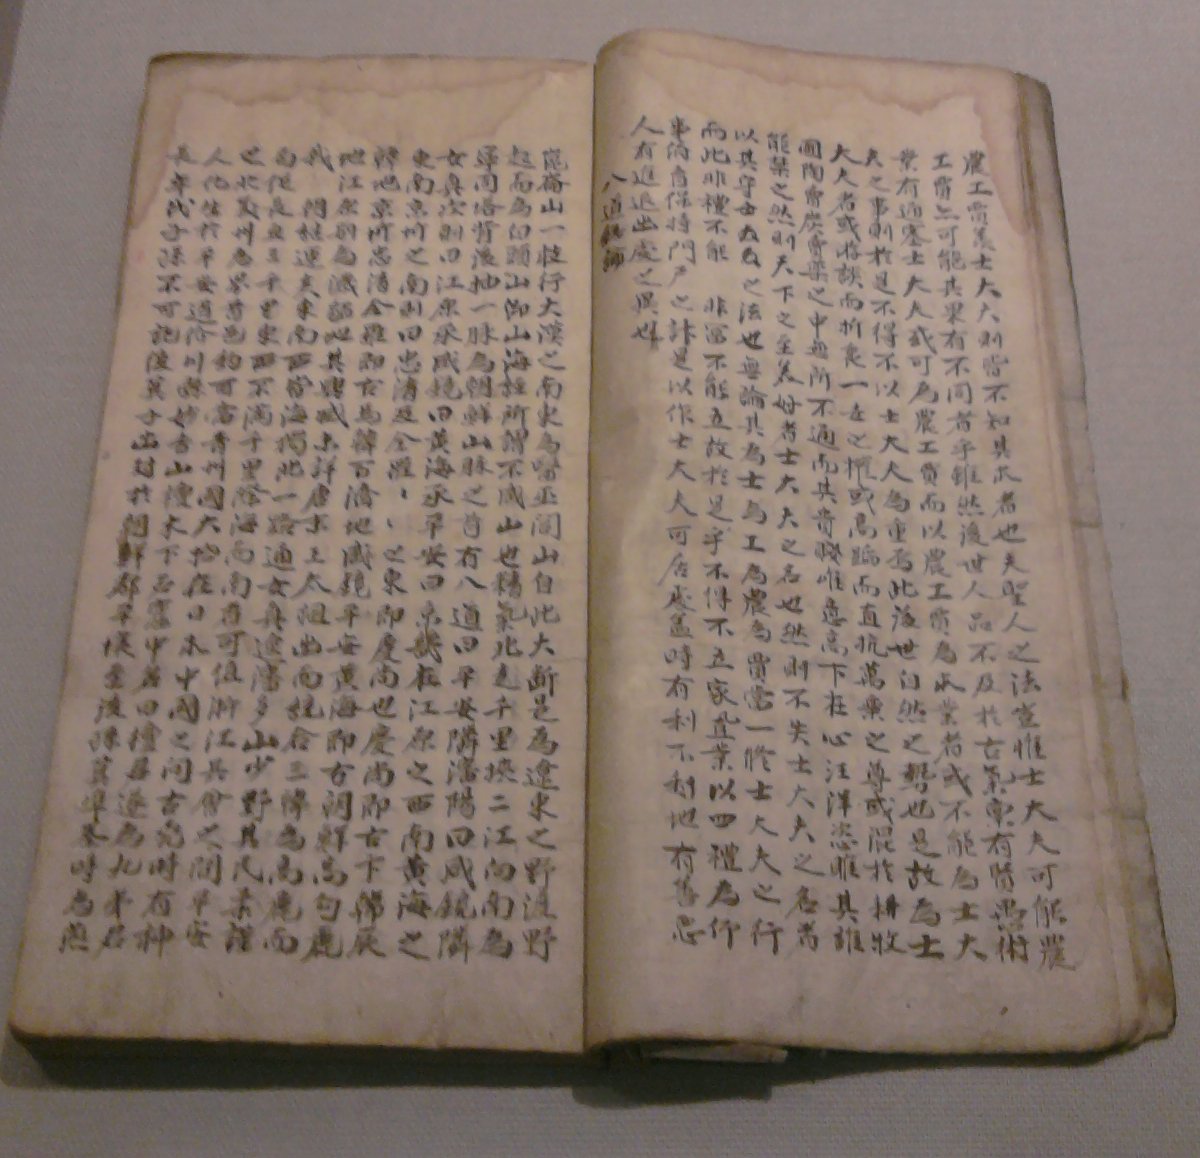 農工賈羨士大夫則皆不知其本者也夫聖人之法豈惟士大夫可能農
工賈亦可能其果有不同者乎雖然後世人品不及於古氣稟有賢愚術
業有通塞士大夫或可為農工賈而以農工賈為本業者或不能為士大
夫之事則於是不得不以士大夫為重焉此後世自然之勢也是故為士
大夫者或將談而折衷一在之權或高蹈而直抗萬乘之尊或混於耕牧
圃陶賣炭賣藥之中無所不通而其貴賤惟意高下在心汪洋恣睢其誰
能禁之然則天下之至美好者士大夫之名也然則不失士大夫之名者
以其守古之法也無論其為士為工為農為賈當一修士大夫之行
而此非禮不能 非富不能立故於是乎不得不立家置業以四禮為仰
事俯育保持門戶之計是以作士大夫可居處盖時有利不利地有善惡
人有進退出處之異也
八道總論
崑崙山一枝行大漠之南東為醫巫閭山自此大斷是為遼東之野渡野
起而為白頭山即山海經所謂不咸山也精氣北走千里挾二江向南為
寧固塔背後抽一脉為朝鮮山脉之首有八道曰平安隣瀋陽曰咸鏡隣
女真次則曰江原承咸鏡曰黃海承平安曰京畿在江原之西南黃海之
東南京畿之南則曰忠清及全羅ヽヽ之東即慶尚也慶尚即古卞韓辰
韓地京畿忠清全羅即古馬韓百濟地咸鏡平安黃海即古朝鮮高句麗
地江原別為濊貊地其興滅未詳唐末王太祖出而統合三韓為高麗而
我 朝繼運矣東南西皆海獨北一路通女真遼瀋多山少野其民柔謹
局促長亘三千里東西不滿千里際海而南者可值浙江吳會之間平安
之北義州為界首邑約可當青州國大抵在日本中國之間古堯時有神
人化生於平安道价川縣妙香山檀木下石窟中名曰檀君遂為九夷君
長年代子孫不可記後箕子出封於朝鮮都平壤至後孫箕準秦時為燕